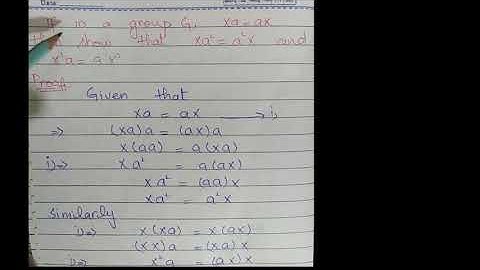 Date
If in a group G, xa = ax
then show that xa² = a²x and
x²a = ax²
Proof
Given that
xa = ax ⟶ i,
⇒ (xa)a = (ax)a
x(aa) = a(xa)
i) ⇒ xa² = a(ax)
xa² = (aa)x
xa² = a²x
Similarly
i) ⇒ x(xa) = x(ax)
(xx)a = (xa)x
i) ⇒ x²a = (ax)x